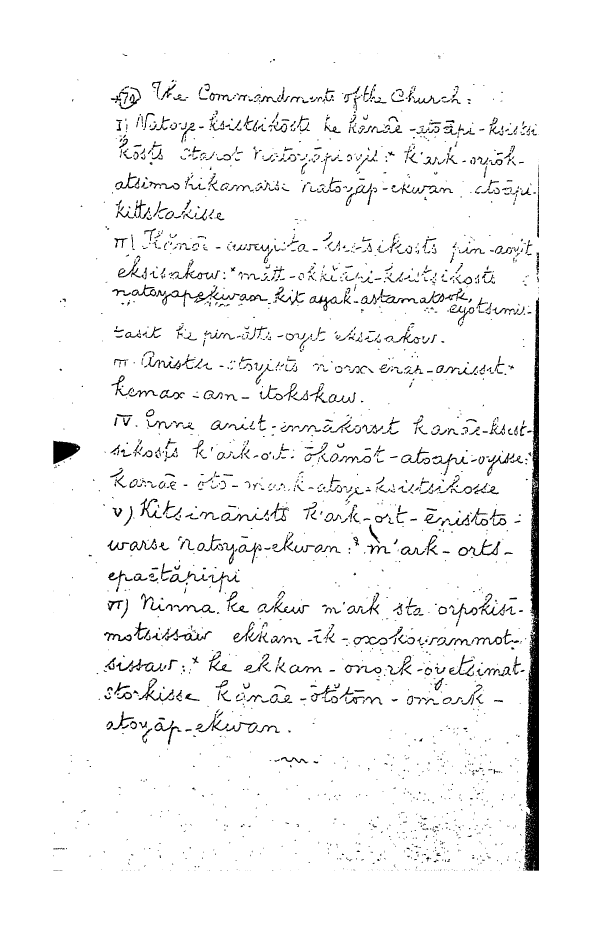 70 The Commandments of the Church:
I) Natoye-ksistsikōsts ke kănāe-atoāpi-ksistsi
kōsts stanot natoyāpioyis:* k'ark-oyiok-
atsimohikamarse natoyāp-ekwan atoāpi-
kittstakisse
II) Kănāe-aweyista-ksistsikosts pin-aoyit
eksisakow:* mātt-okkiāpi-ksistsikosts
natoyapekwan kit ayak-astamatsok, eyotsimis-
tasit ke pin-ātts-oyit eksisakow.
III. Anistsi-stoyists n'orx enap-anissit.*
kemax-am-itokskaw.
IV. Enne anist-ennākorsit kanāe-ksist-
sikosts k'ark-ort-ōkămōt-atoapi-oyisse:*
kanāe-ōtō-mark-atoye-ksistsikosse
V) Kitsinānists k'ark-ort-ēnistoto-
warse natoyāp-ekwan:* m'ark-orts-
epaētăpiipi
VI) Ninna ke akew m'ark sta orpokisī-
motsissaw ekkam-īk-oxokowammot-
sissaw:* ke ekkam-onork-oyetsimat-
storkisse kănāe-ōtōtōm-omark-
atoyāp-ekwan.